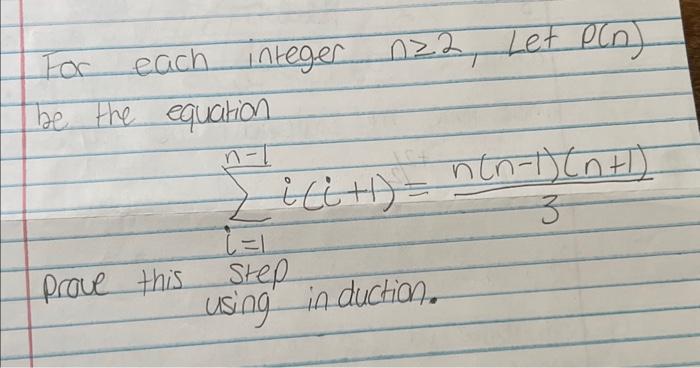 For each integer n≥2, Let P(n)
be the equation
n-1
∑ i(i+1) = n(n-1)(n+1)
3
i=1
prove this step
using induction.